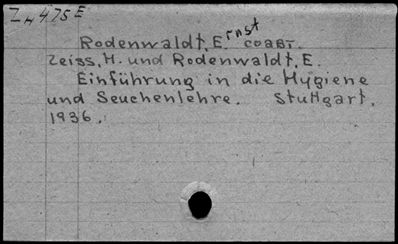 Z H 475 E
Rodenwaldt, E.rnst соавт.
Zeiss, H. und Rodenwaldt, E.
Einführung in die Hygiene
und Seuchenlehre. Stuttgart,
1936.